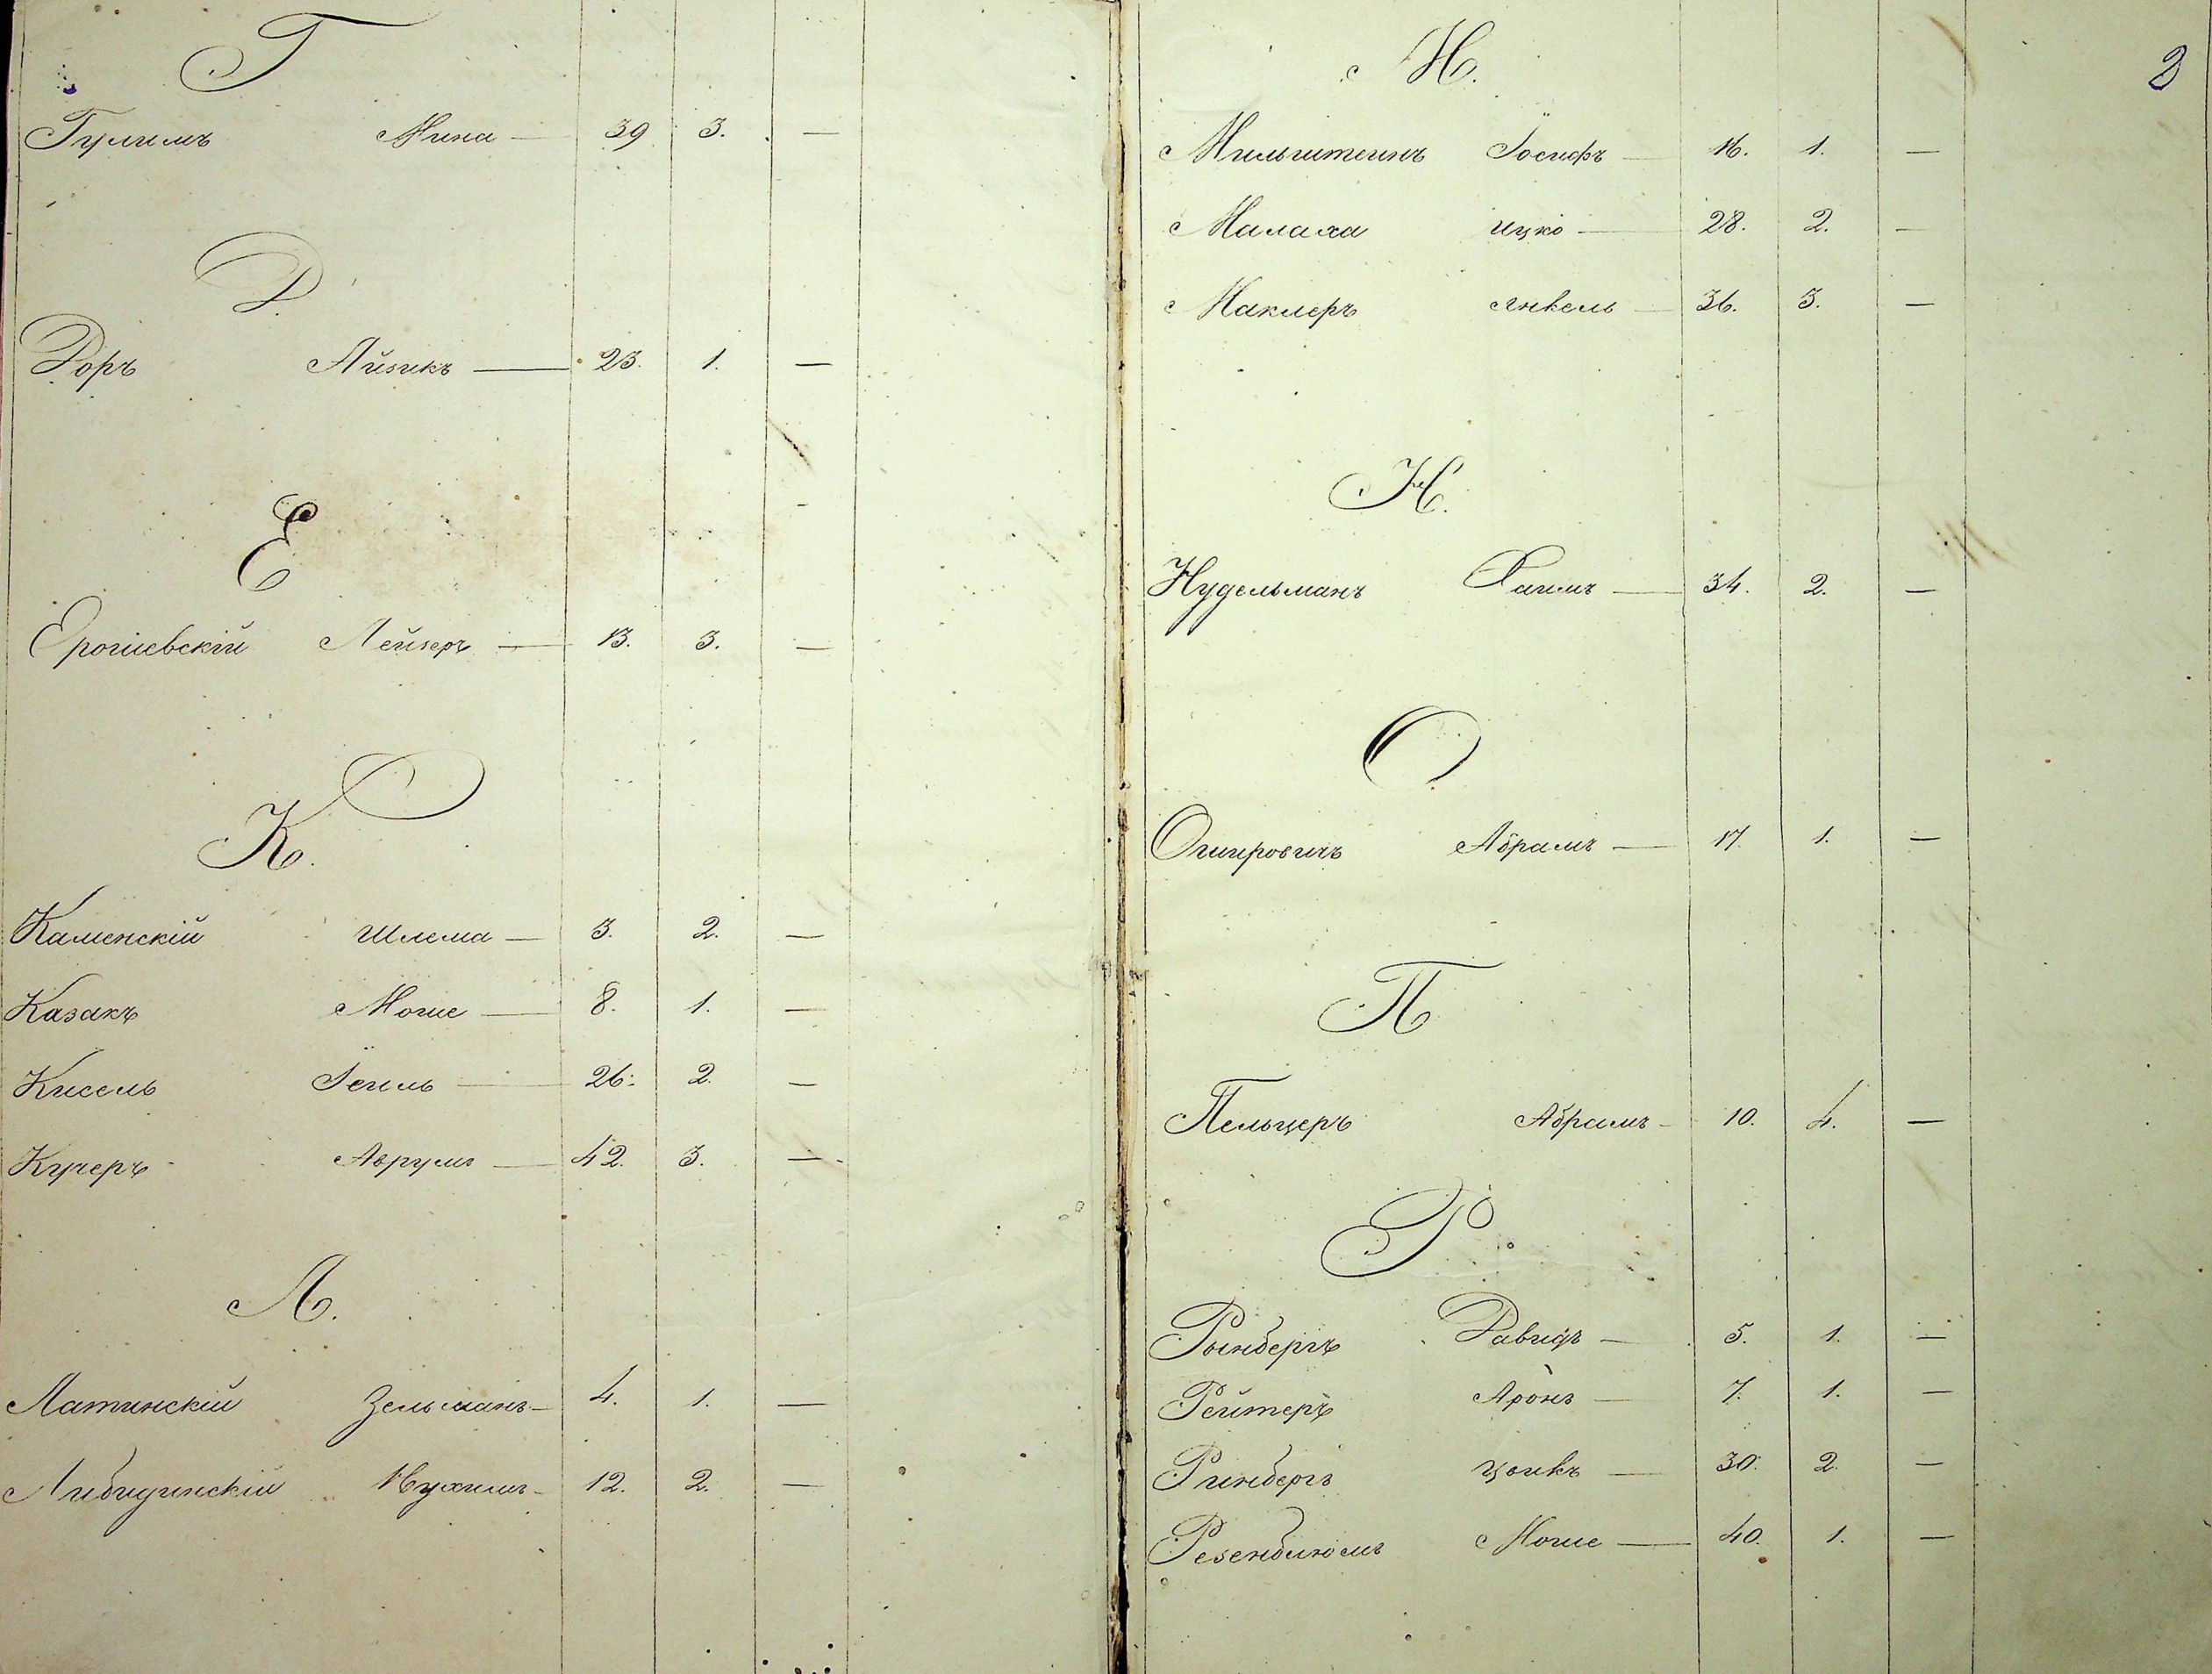 Г
Гулимъ Мина — 39 3. —
Д.
Доръ Айзикъ — 23. 1. —
Е
Ерогиевскій Лейзеръ — 13. 3. —
К.
Каменскій Шлема — 3. 2. —
Казакъ Моше — 8. 1. —
Кисель Іеиль — 26. 2. —
Кучеръ Аврумъ — 42. 3. —
Л.
Латинскій Зельманъ — 4. 1. —
Либидинскій Нухимъ — 12. 2. —
2
М.
Мильштеинъ Іосифъ — 16. 1. —
Малаха Ицко — 28. 2. —
Маклеръ Янкель — 36. 3. —
Н.
Нудельманъ Хаимъ — 34. 2. —
О
Ошировичъ Абрамъ — 17. 1. —
П
Пельцеръ Абрамъ — 10. 4. —
Р
Рынбергъ Давидъ — 5. 1. —
Рейтеръ Аронъ — 7. 1. —
Ринбергъ — 30. 2. —
Резенблюмъ Моше — 40. 1. —